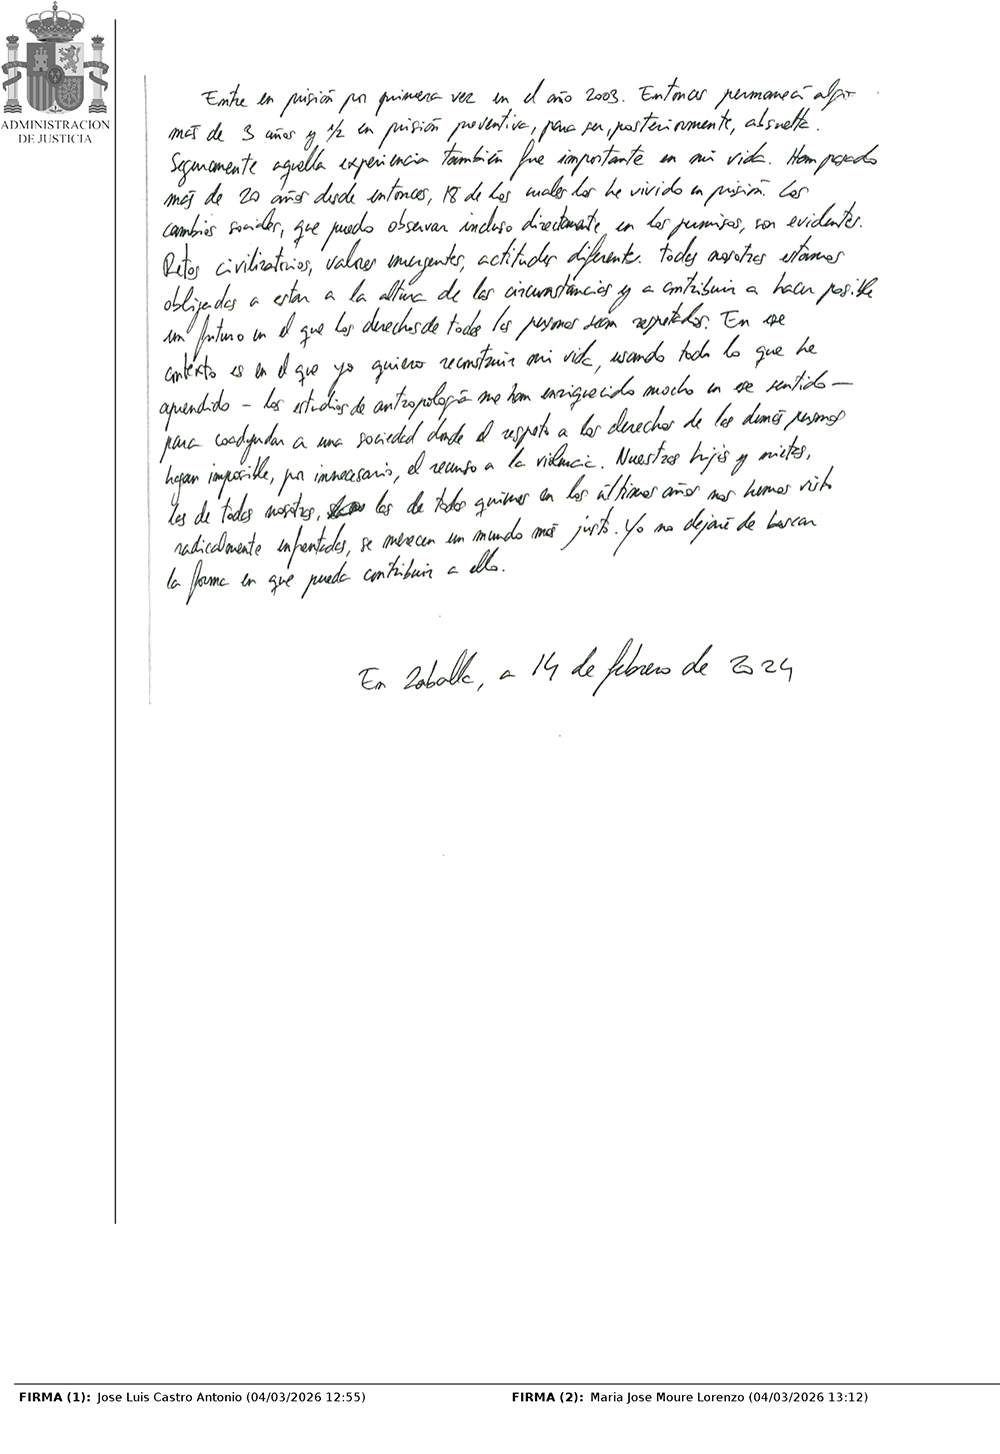 ADMINISTRACION
DE JUSTICIA
Entre en prisión por primera vez en el año 2003. Entonces permanecí algo
más de 3 años y 1/2 en prisión preventiva, para ser, posteriormente, absuelta.
Seguramente aquella experiencia también fue importante en mi vida. Han pasado
más de 20 años desde entonces, 18 de los cuales los he vivido en prisión. Los
cambios sociales, que puedo observar incluso directamente, en los permisos, son evidentes.
Retos civilizatorios, valores emergentes, actitudes diferente. Todas nosotras estamos
obligadas a estar a la altura de las circunstancias y a contribuir a hacer posible
un futuro en el que los derechos de todas las personas sean respetados. En ese
contexto es en el que yo quiero reconstruir mi vida, usando todo lo que he
aprendido - los estudios de antropología me han enriquecido mucho en ese sentido -
para coadyudar a una sociedad donde el respeto a los derechos de las demás personas
hagan imposible, por innecesario, el recurso a la violencia. Nuestros hijos y nietos,
los de todas nosotras, los de todos quienes en los últimos años nos hemos visto
radicalmente enfrentadas, se merecen un mundo más justo. Yo no dejaré de buscar
la forma en que pueda contribuir a ello.
En Zaballa, a 14 de febrero de 2024
FIRMA (1): Jose Luis Castro Antonio (04/03/2026 12:55)
FIRMA (2): Maria Jose Moure Lorenzo (04/03/2026 13:12)